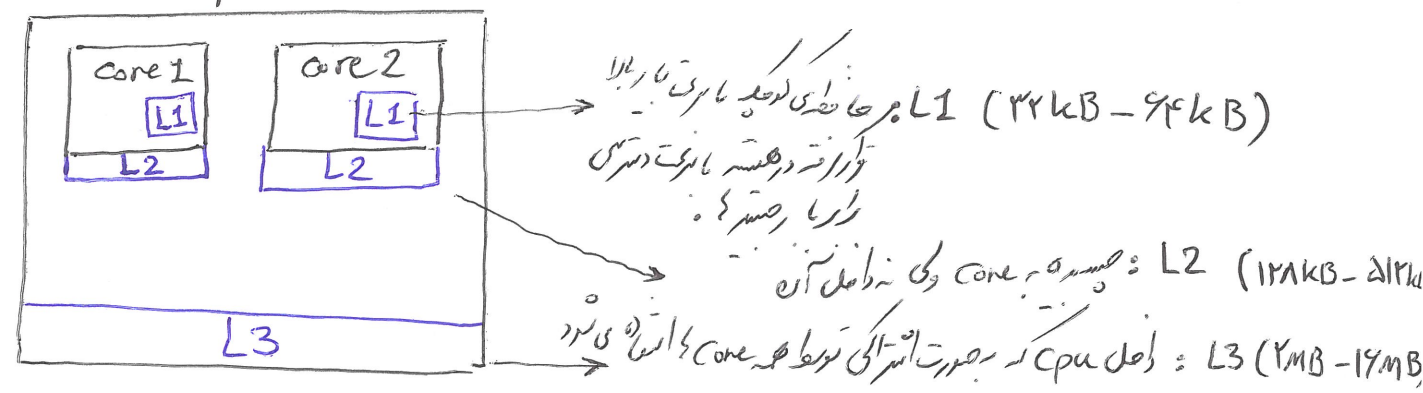 core 1
core 2
L1
L1
L2
L2
L3
L1 (۳۲kB - ۶۴kB) : حافظه‌ای کوچک با سرعت بالا
قرار گرفته در هسته با سرعت دسترسی
L2 (۱۲۸kB - ۵۱۲k : چسبیده به core ولی نه داخل آن
L3 (۲MB - ۱۶MB : داخل cpu که بصورت اشتراکی توسط همه core ها استفاده می شود